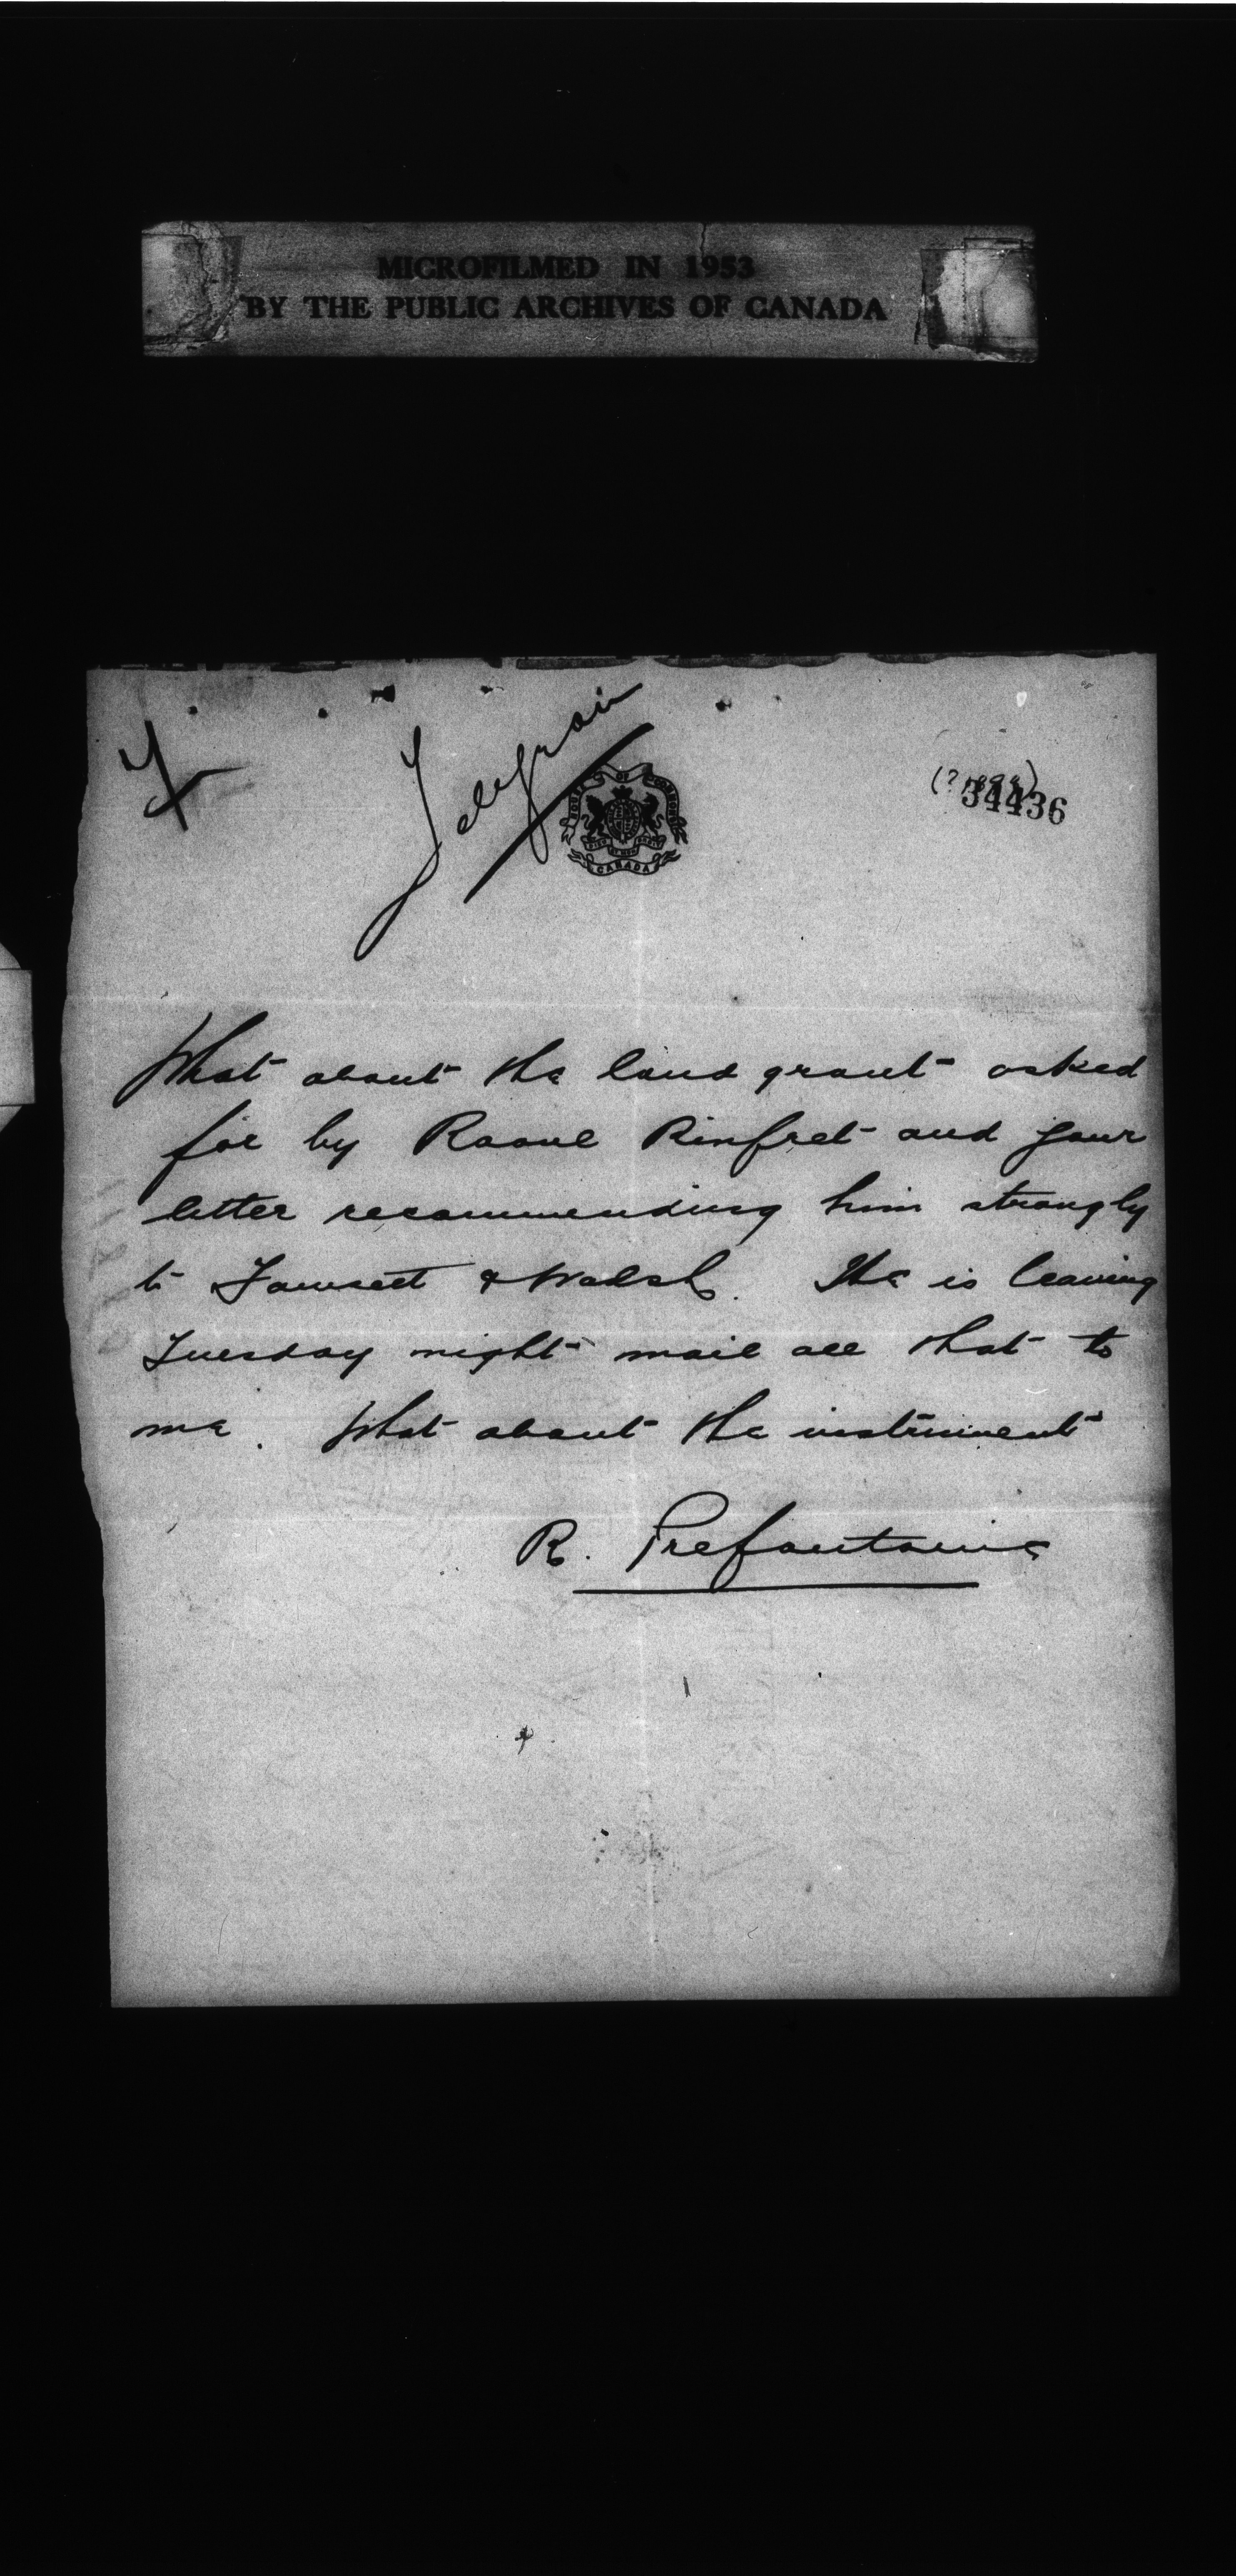 MICROFILMED IN 1953
BY THE PUBLIC ARCHIVES OF CANADA
Telegram
34436
HOUSE OF COMMONS
CANADA
What about the land grant asked
for by Raoul Rinfret and your
letter recommending him strongly
to Fawcett & Walsh. He is leaving
Tuesday night mail all that to
me. What about the instrument
R. Prefontaine